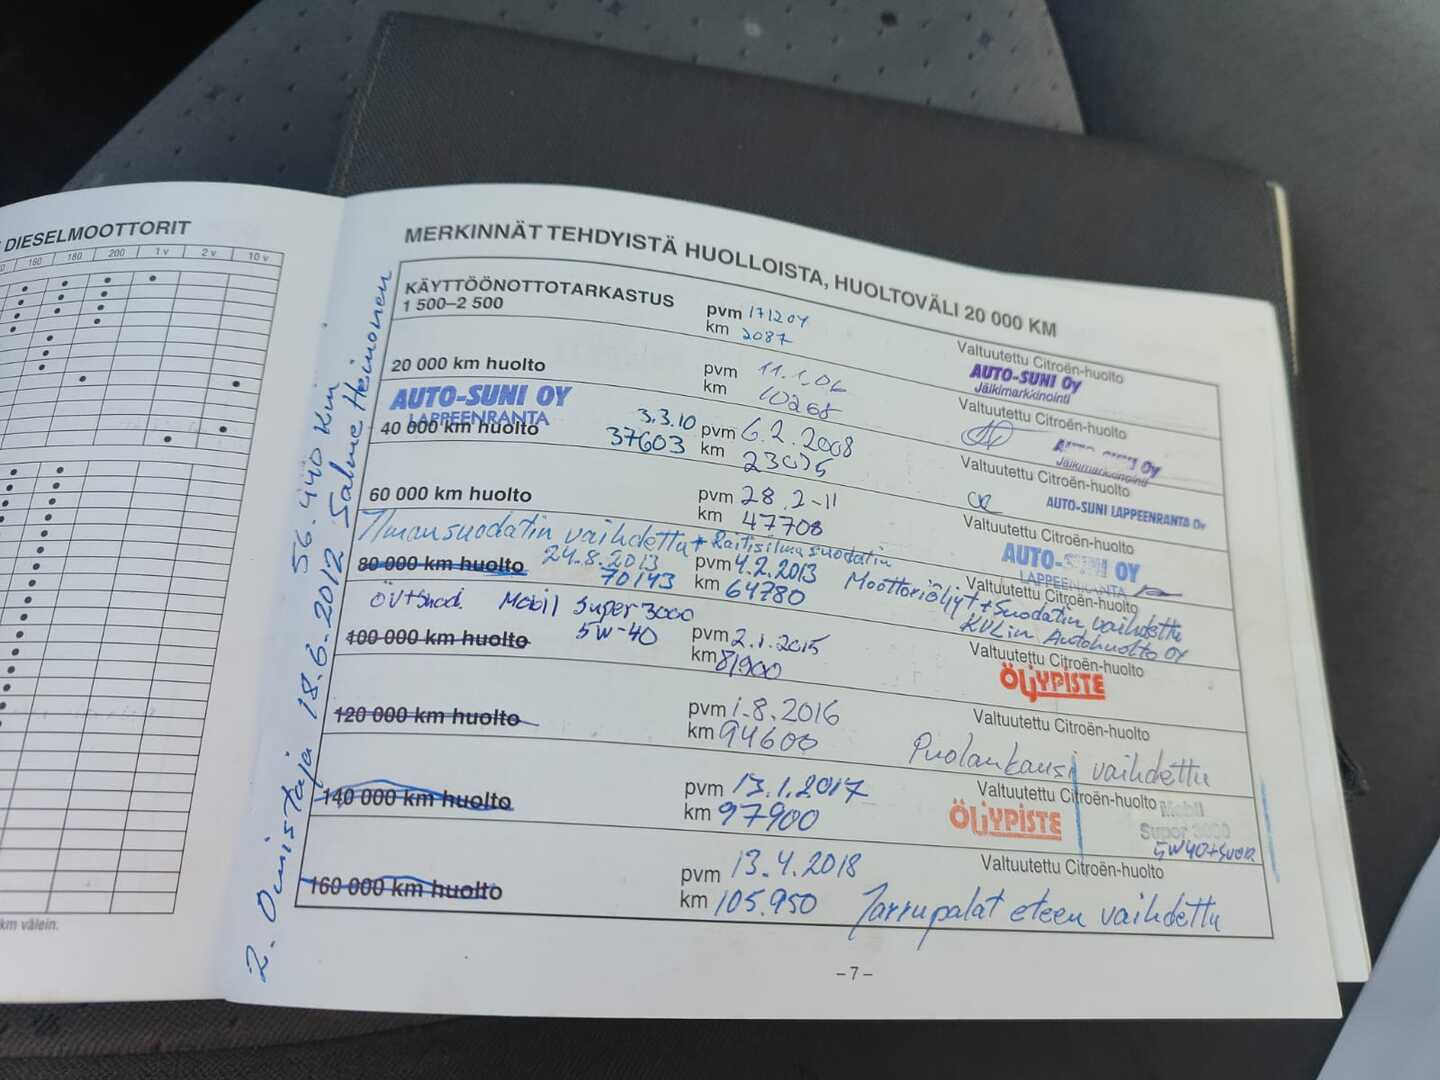 DIESELMOOTTORIT
160 180 200 1 v 2 v 10 v
km välein.
2. Omistaja 18.6.2012 Salme Heinonen
56.440 km
MERKINNÄT TEHDYISTÄ HUOLLOISTA, HUOLTOVÄLI 20 000 KM
KÄYTTÖÖNOTTOTARKASTUS
1 500–2 500
pvm 171204
km 2087
Valtuutettu Citroën-huolto
AUTO-SUNI Oy
Jälkimarkkinointi
20 000 km huolto
pvm 11.1.06
km 10268
Valtuutettu Citroën-huolto
AUTO-SUNI Oy
Jälkimarkkinointi
AUTO-SUNI OY
LAPPEENRANTA
40 000 km huolto
3.3.10
37603
pvm 6.2.2008
km 23075
Valtuutettu Citroën-huolto
AUTO-SUNI LAPPEENRANTA Oy
60 000 km huolto
pvm 28.2-11
km 47708
Valtuutettu Citroën-huolto
AUTO-SUNI OY
LAPPEENRANTA
Ilmansuodatin vaihdettu + Raitisilmasuodatin
80 000 km huolto
24.8.2013
70143
pvm 4.2.2013
km 64780
Valtuutettu Citroën-huolto
Moottoriöljyt + Suodatin vaihdettu
KVLin Autohuolto OY
öv+suod. Mobil Super 3000
5W-40
100 000 km huolto
pvm 2.1.2015
km 81900
Valtuutettu Citroën-huolto
ÖLJYPISTE
120 000 km huolto
pvm 1.8.2016
km 94600
Valtuutettu Citroën-huolto
Puolankausi vaihdettu
140 000 km huolto
pvm 13.1.2017
km 97900
Valtuutettu Citroën-huolto
ÖLJYPISTE
Mobil
Super 3000
5W40+suod
160 000 km huolto
pvm 13.4.2018
km 105.950
Valtuutettu Citroën-huolto
Jarrupalat eteen vaihdettu
–7–